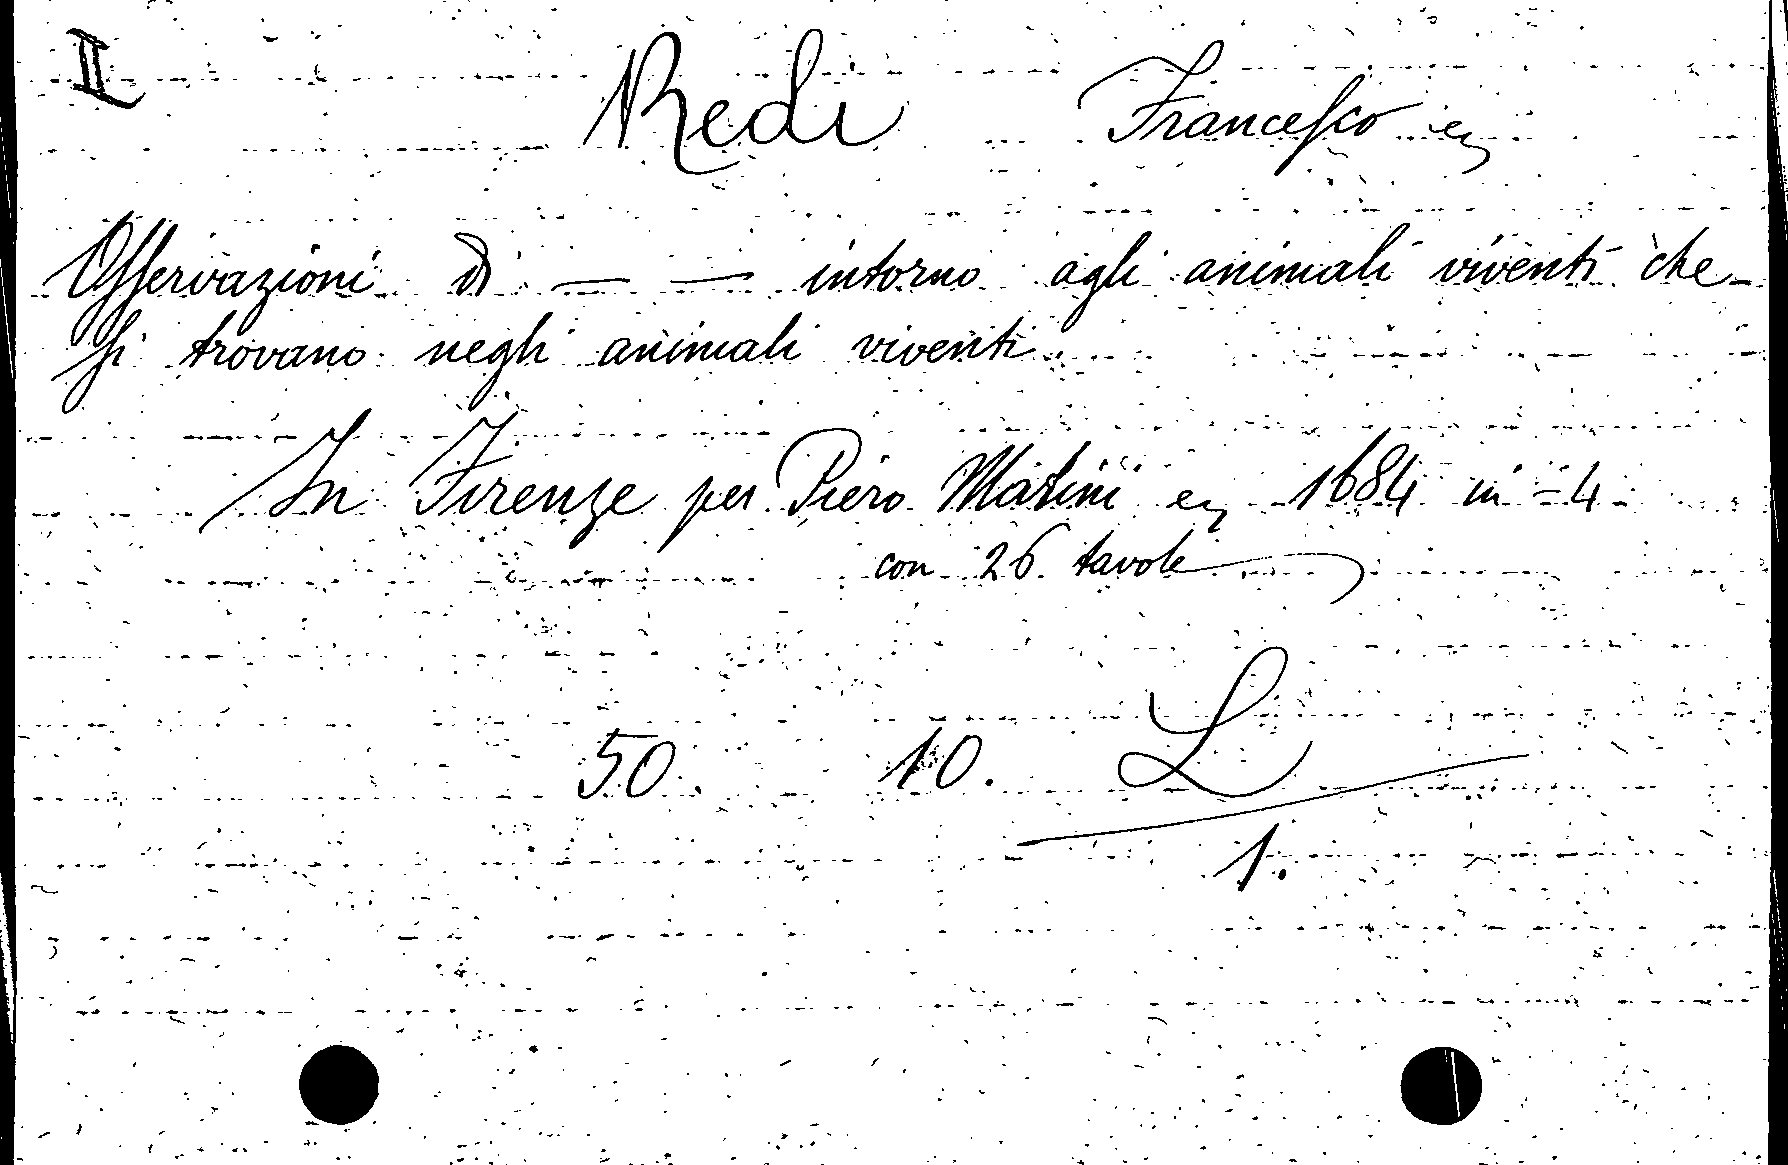 II
Redi Francesco
Osservazioni di — — intorno agli animali viventi che
si trovano negli animali viventi
In Firenze per Piero Matini 1684 in = 4
con 26 tavole
50. 10. L
1.